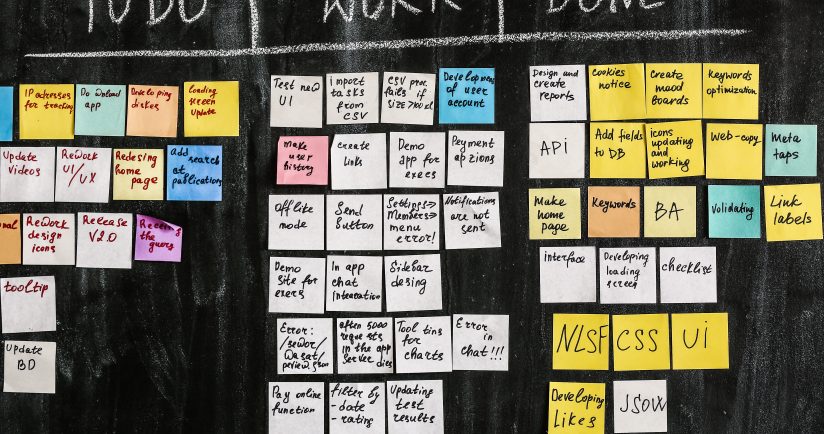 TO DO
WORK
DONE
IP adresses
for tracking
Download
app
Developing
dishes
Loading
screen
Update
Update
videos
ReWork
UI/UX
Redesing
home
page
add search
at
publications
nal
ReWork
design
icons
Release
V2.0
the
tooltip
Update
BD
Test new
UI
import
tasks
from
CSV
CSV proc.
fails if
Development
of user
account
make
user
history
create
links
Demo
app for
execs
Peyment
Offlite
mode
Send
Button
Settings→
Members→
menu
error!
Notifications
are not
sent
Demo
site for
execs
In app
chat
Sidebar
desing
Error:
after 5000
requests
in the app
Server dies
Tool tins
for
charts
Error
in
chat!!!
Pay online
function
filter by
-date
-rating
Updating
test
results
Design and
create
reports
cookies
notice
Create
mood
Boards
Keywords
optimization
API
Add fields
to DB
icons
updating
and
working
web-copy
Meta
taps
Make
home
page
Keywords
BA
Validating
Link
labels
interface
Developing
loading
screen
checklist
NLSF
CSS
Ui
Developing
Likes
JSOW